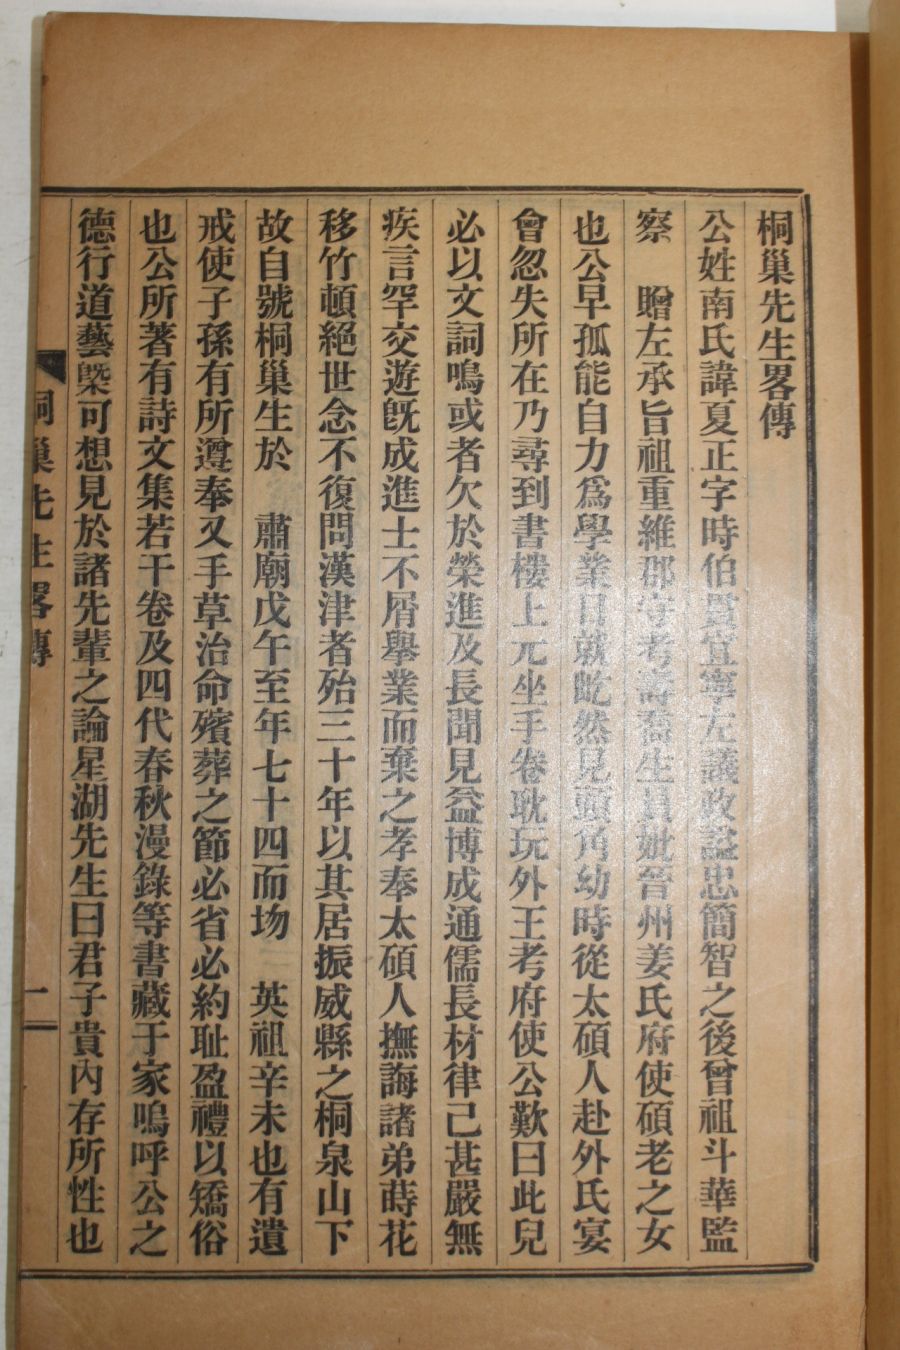 桐巢先生畧傳
公姓南氏諱夏正字時伯貫宜寧左議政諡忠簡智之後曾祖斗華監
察　贈左承旨祖重維郡守考壽喬生員妣晉州姜氏府使碩老之女
也公早孤能自力爲學業日就屹然見頭角幼時從太碩人赴外氏宴
會忽失所在乃尋到書樓上兀坐手卷耽玩外王考府使公歎曰此兒
必以文詞鳴或者欠於榮進及長聞見益博成通儒長材律己甚嚴無
疾言罕交遊旣成進士不屑擧業而棄之孝奉太碩人撫誨諸弟蒔花
移竹頓絕世念不復問漢津者殆三十年以其居振威縣之桐泉山下
故自號桐巢生於　肅廟戊午至年七十四而圽　英祖辛未也有遺
戒使子孫有所遵奉又手草治命殯葬之節必省必約耻盈禮以矯俗
也公所著有詩文集若干卷及四代春秋漫錄等書藏于家嗚呼公之
德行道藝槩可想見於諸先輩之論星湖先生曰君子貴內存所性也
桐巢先生畧傳
一